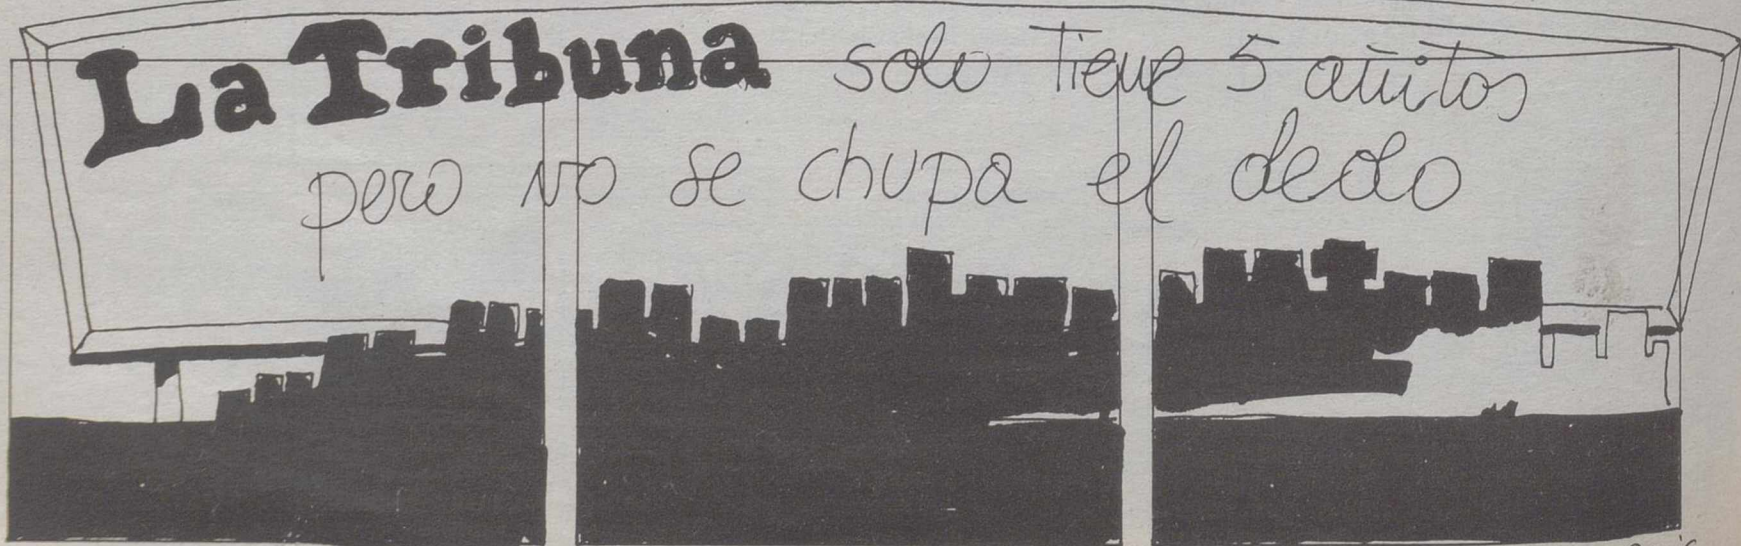 La Tribuna solo tiene 5 añitos
pero no se chupa el dedo